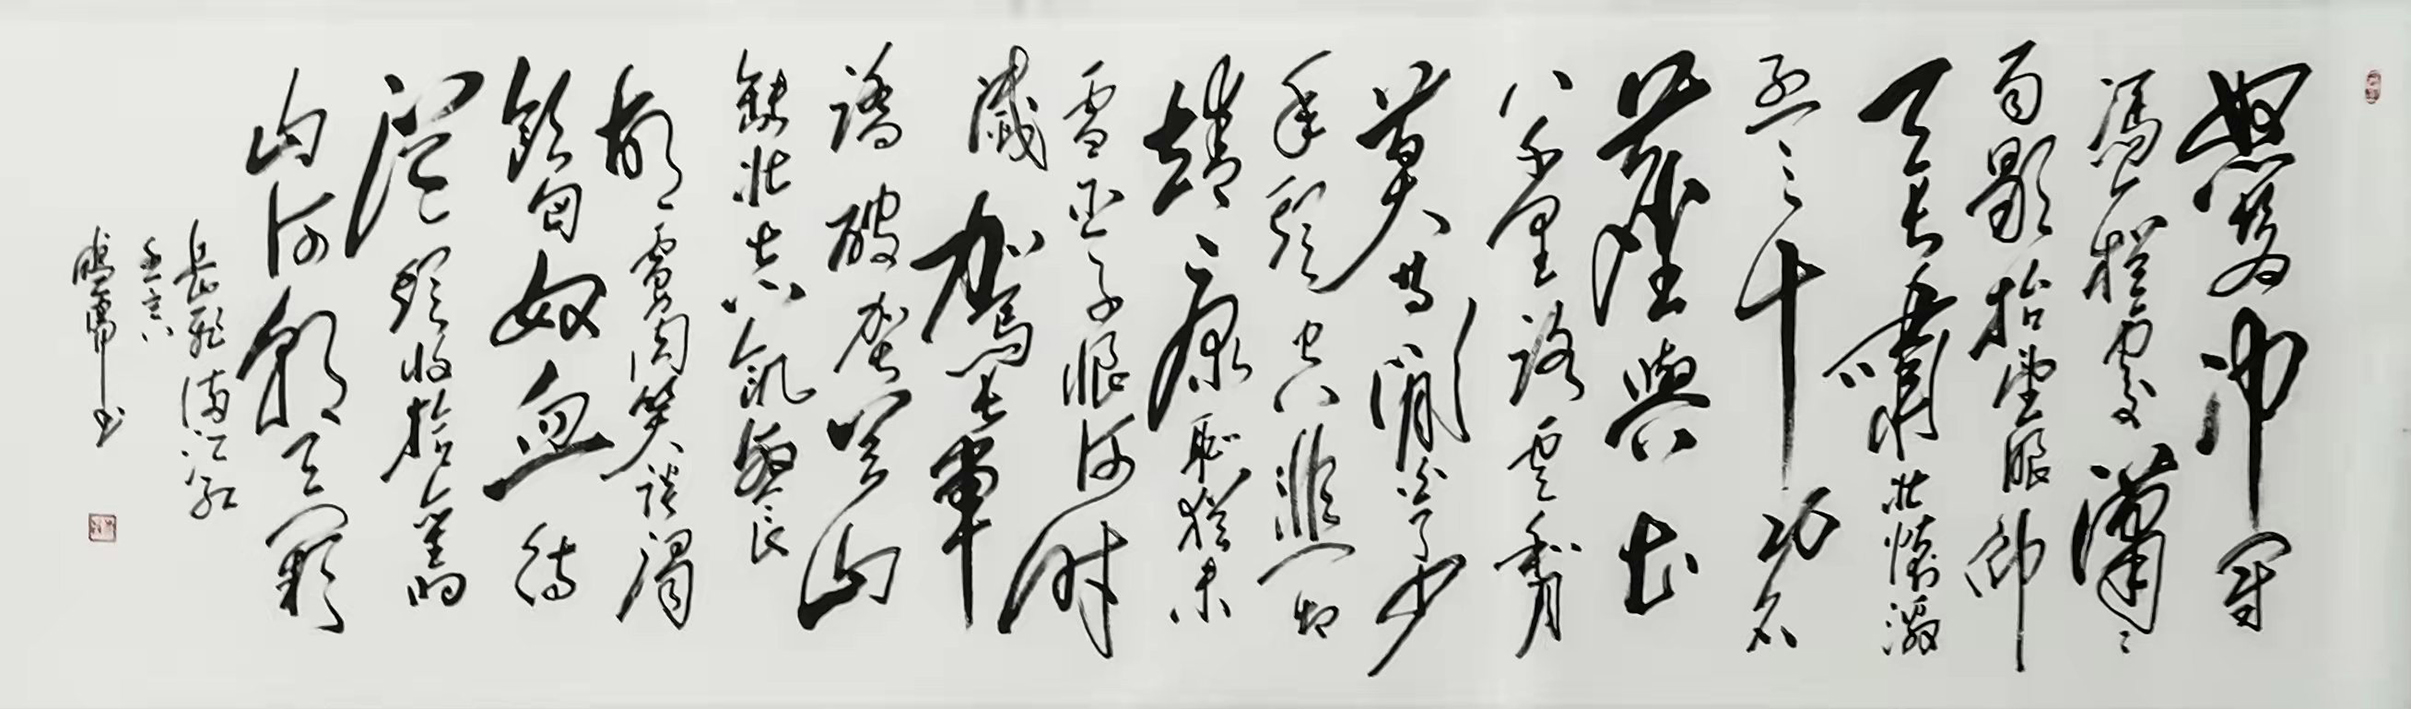 怒发冲冠
凭栏处潇潇
雨歇抬望眼仰
天长啸壮怀激
烈三十功名
尘与土
八千里路云和月
莫等闲白了少
年头空悲切
靖康耻犹未
雪臣子恨何时
灭驾长车
踏破贺兰山
缺壮志饥餐
胡虏肉笑谈渴
饮匈奴血待
从头收拾旧
山河朝天阙
岳飞满江红
书